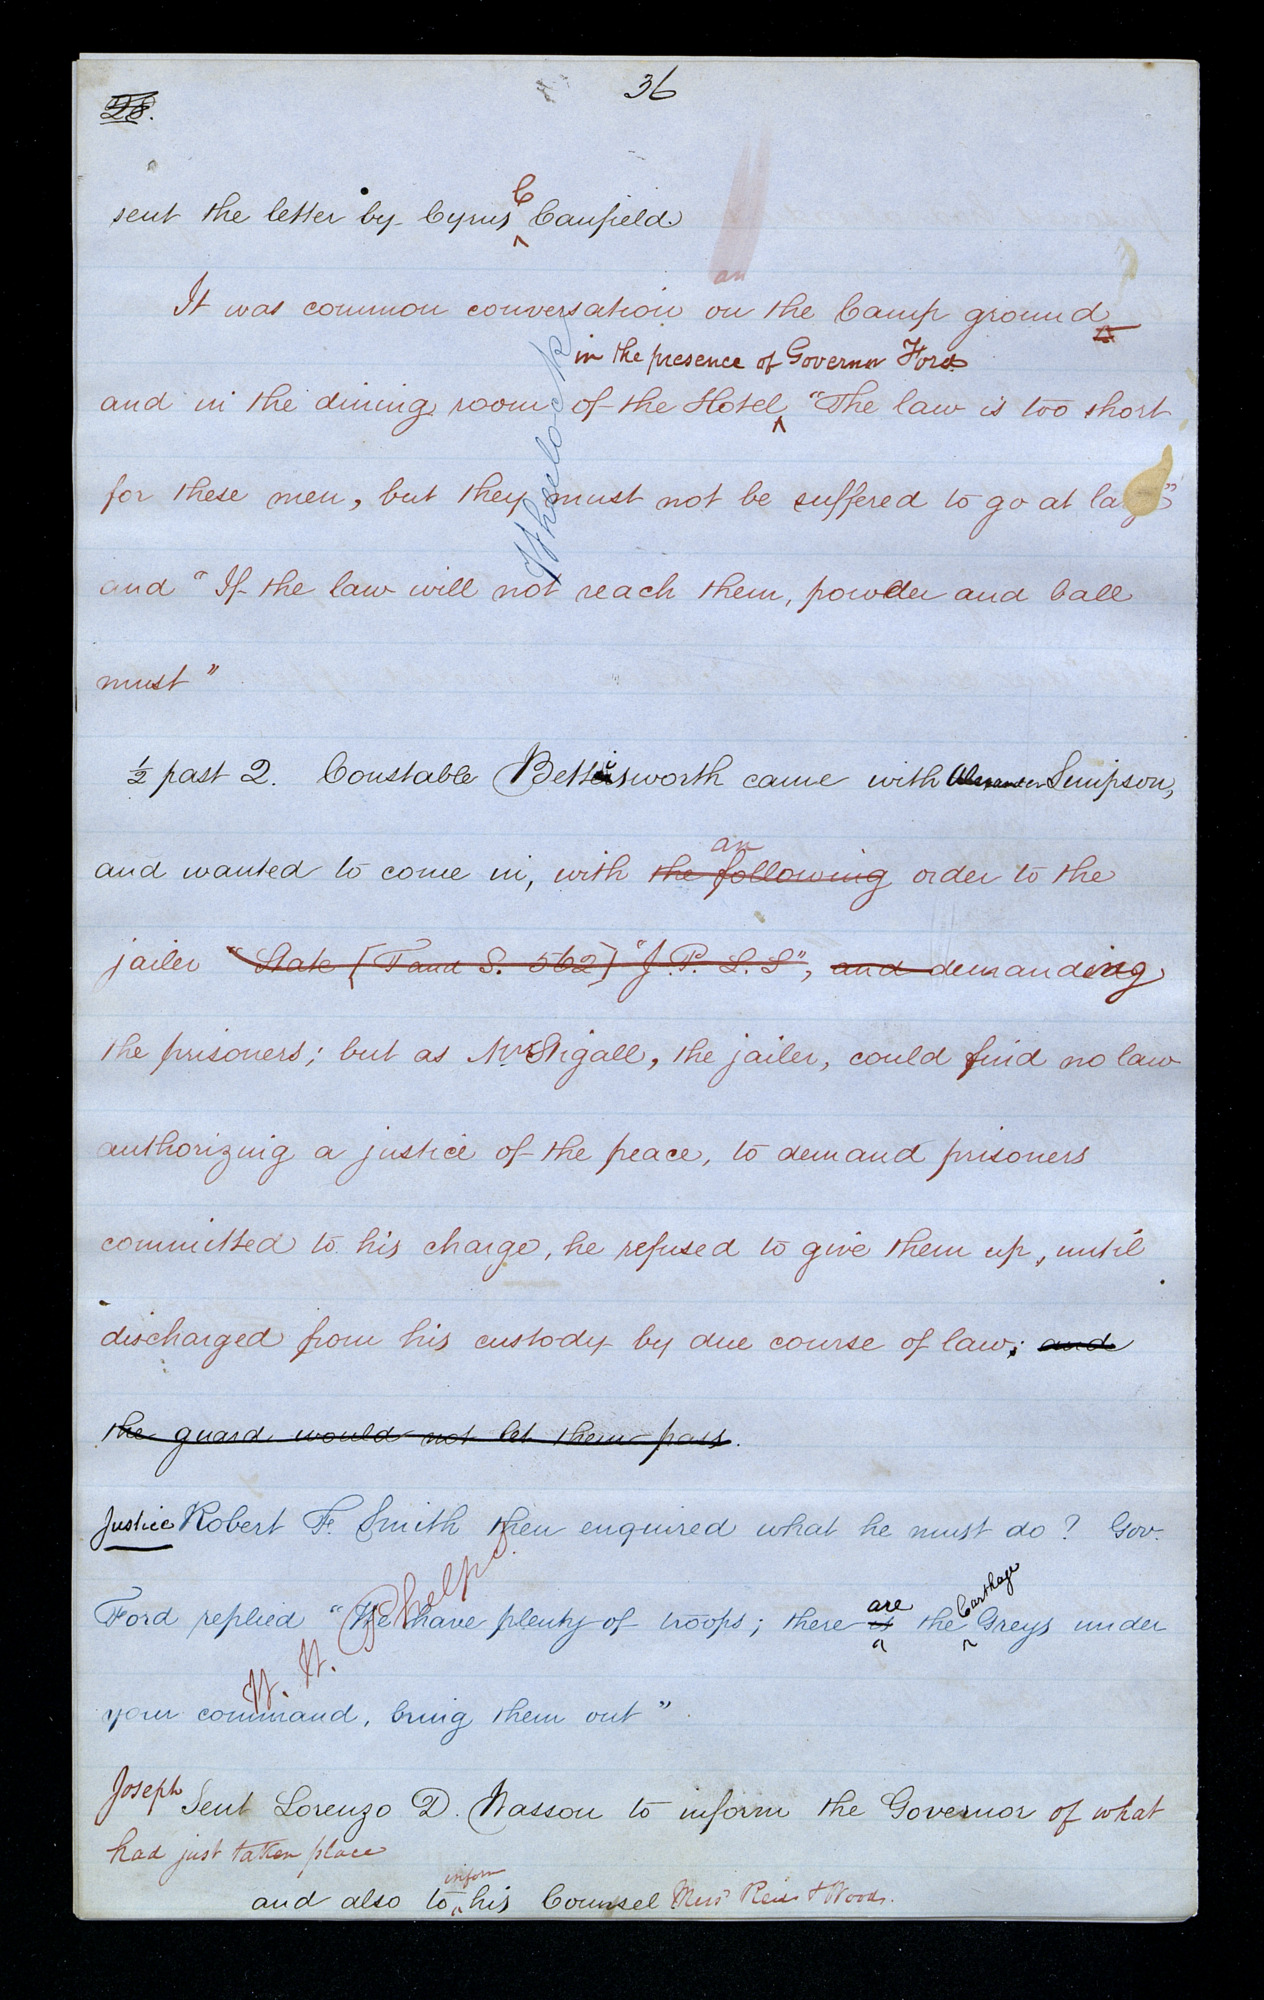 36
28.
C
sent the letter by Cyrus ^ Canfield
an
It was common conversation on the Camp ground
in the presence of Governor Ford
and in the dining room of the Hotel ^ "The law is too short
for these men, but they must not be suffered to go at large"
and "If the law will not reach them, powder and ball
must"
Wheelock
½ past 2. Constable Bettisworth came with Alexander Simpson,
an
and wanted to come in, with the following order to the
jailer "State [T and S. 562] "J. P. L. S", and demanding
the prisoners; but as Mr Stigall, the jailer, could find no law
authorizing a justice of the peace, to demand prisoners
committed to his charge, he refused to give them up, until
discharged from his custody by due course of law; and
the guard would not let them pass.
Justice Robert F. Smith then enquired what he must do? Gov.
are Carthage
Ford replied "We have plenty of troops; there is ^ the ^ Greys under
your command, bring them out"
H. H. Phelps.
Joseph Sent Lorenzo D. Wasson to inform the Governor of what
had just taken place
inform
and also to ^ his Counsel Messrs Reid & Woods.